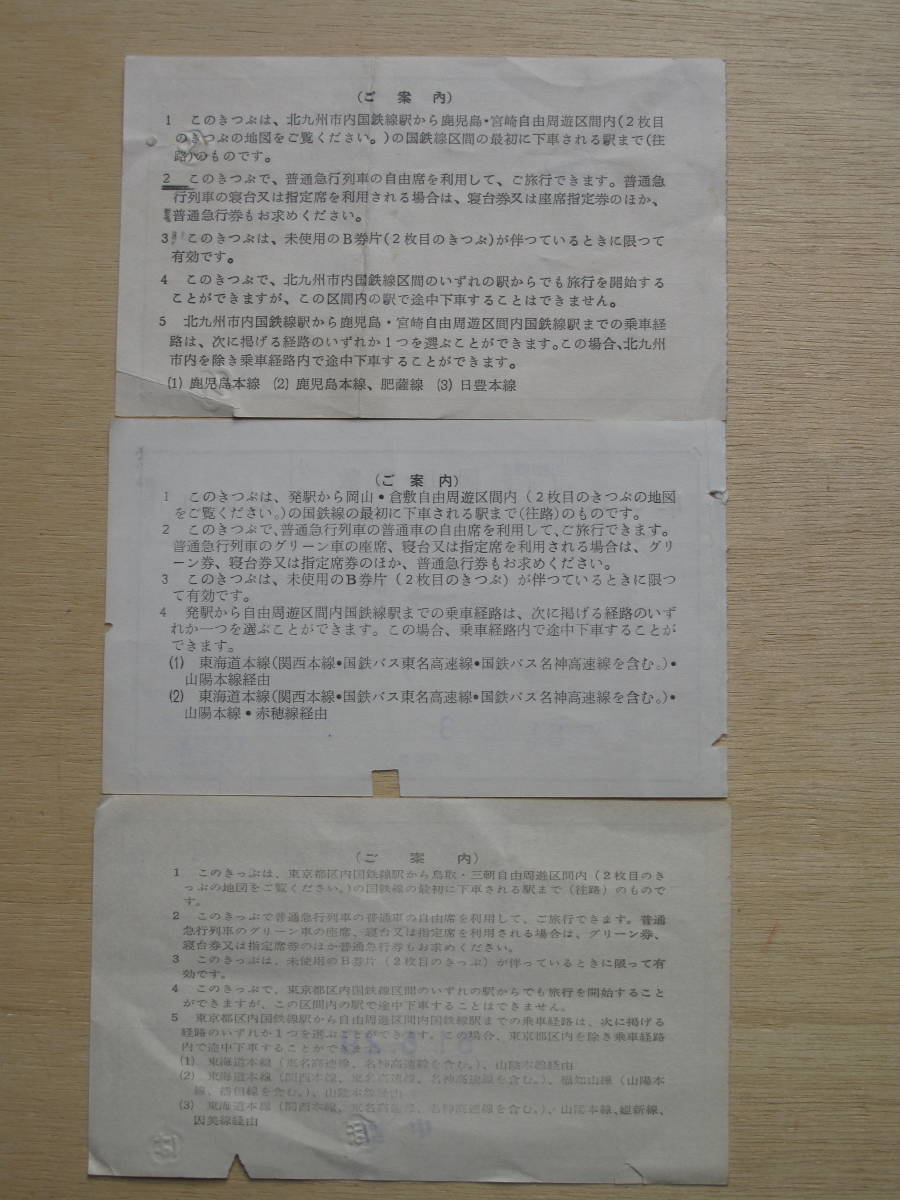 (ご案内)
1 このきつぷは、北九州市内国鉄線駅から鹿児島・宮崎自由周遊区間内(2枚目
のきつぷの地図をご覧ください。)の国鉄線区間の最初に下車される駅まで(往
路)のものです。
2 このきつぷで、普通急行列車の自由席を利用して、ご旅行できます。普通急
行列車の寝台又は指定席を利用される場合は、寝台券又は座席指定券のほか、
普通急行券もお求めください。
3 このきつぷは、未使用のB券片(2枚目のきつぷ)が伴つているときに限つて
有効です。
4 このきつぷで、北九州市内国鉄線区間のいずれの駅からでも旅行を開始する
ことができますが、この区間内の駅で途中下車することはできません。
5 北九州市内国鉄線駅から鹿児島・宮崎自由周遊区間内国鉄線駅までの乗車経
路は、次に掲げる経路のいずれか1つを選ぶことができます。この場合、北九州
市内を除き乗車経路内で途中下車することができます。
(1) 鹿児島本線 (2) 鹿児島本線、肥薩線 (3) 日豊本線
(ご案内)
1 このきつぷは、発駅から岡山・倉敷自由周遊区間内(2枚目のきつぷの地図
をご覧ください。)の国鉄線の最初に下車される駅まで(往路)のものです。
2 このきつぷで、普通急行列車の普通車の自由席を利用して、ご旅行できます。
普通急行列車のグリーン車の座席、寝台又は指定席を利用される場合は、グリ
ーン券、寝台券又は指定席券のほか、普通急行券もお求めください。
3 このきつぷは、未使用のB券片(2枚目のきつぷ)が伴つているときに限つ
て有効です。
4 発駅から自由周遊区間内国鉄線駅までの乗車経路は、次に掲げる経路のいず
れか一つを選ぶことができます。この場合、乗車経路内で途中下車することが
できます。
(1) 東海道本線(関西本線・国鉄バス東名高速線・国鉄バス名神高速線を含む。)・
山陽本線経由
(2) 東海道本線(関西本線・国鉄バス東名高速線・国鉄バス名神高速線を含む。)・
山陽本線・赤穂線経由
(ご案内)
1 このきっぷは、東京都区内国鉄線駅から鳥取・三朝自由周遊区間内(2枚目のき
っぷの地図をご覧ください。)の国鉄線の最初に下車される駅まで(往路)のもので
す。
2 このきっぷで普通急行列車の普通車の自由席を利用して、ご旅行できます。普通
急行列車のグリーン車の座席、寝台又は指定席を利用される場合は、グリーン券、
寝台券又は指定席券のほか普通急行券もお求めください。
3 このきっぷは、未使用のB券片(2枚目のきっぷ)が伴っているときに限って有
効です。
4 このきっぷで、東京都区内国鉄線区間のいずれの駅からでも旅行を開始すること
ができますが、この区間内の駅で途中下車することはできません。
5 東京都区内国鉄線駅から自由周遊区間内国鉄線駅までの乗車経路は、次に掲げる
経路のいずれか1つを選ぶことができます。この場合、東京都区内を除き乗車経路
内で途中下車することができます。
(1) 東海道本線(東名高速線、名神高速線を含む。)、山陰本線経由
(2) 東海道本線(関西本線、東名高速線、名神高速線を含む。)、福知山線(山陽本
線、播但線を含む。)、山陰本線経由
(3) 東海道本線(関西本線、東名高速線、名神高速線を含む。)、山陽本線、姫新線、
因美線経由